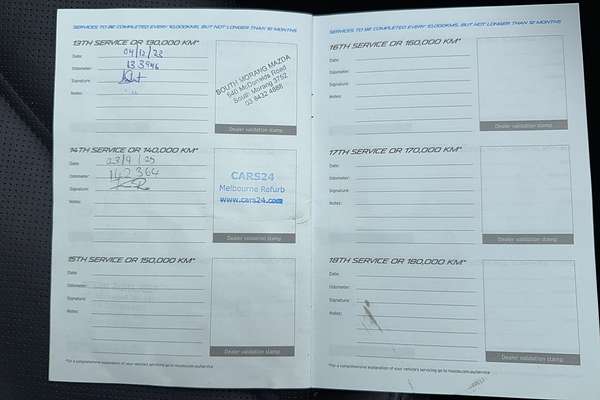 SERVICES TO BE COMPLETED EVERY 10,000KMS, BUT NOT LONGER THAN 12 MONTHS
13TH SERVICE OR 130,000 KM*
Date: 04/12/23
Odometer: 133946
Signature:
Notes:
SOUTH MORANG MAZDA
540 McDonalds Road
South Morang 3752
03 8432 4888
Dealer validation stamp
14TH SERVICE OR 140,000 KM*
Date: 23/9/25
Odometer: 142364
Signature:
Notes:
CARS24
Melbourne Refurb
www.cars24.com
Dealer validation stamp
15TH SERVICE OR 150,000 KM*
Date:
Odometer:
Signature:
Notes:
Dealer validation stamp
*For a comprehensive explanation of your vehicle's servicing go to mazda.com.au/service
SERVICES TO BE COMPLETED EVERY 10,000KMS, BUT NOT LONGER THAN 12 MONTHS
16TH SERVICE OR 160,000 KM*
Date:
Odometer:
Signature:
Notes:
Dealer validation stamp
17TH SERVICE OR 170,000 KM*
Date:
Odometer:
Signature:
Notes:
Dealer validation stamp
18TH SERVICE OR 180,000 KM*
Date:
Odometer:
Signature:
Notes:
Dealer validation stamp
*For a comprehensive explanation of your vehicle's servicing go to mazda.com.au/service